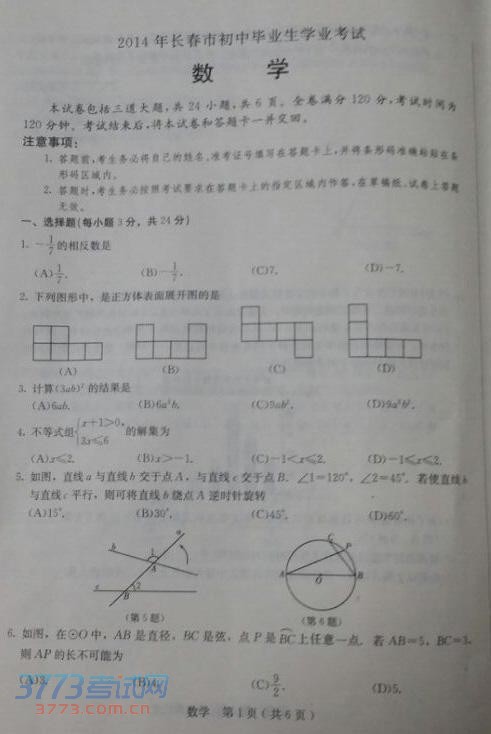 2014年长春市初中毕业生学业考试
数 学
本试卷包括三道大题,共24小题,共6页。全卷满分120分,考试时间为
120分钟。考试结束后,将本试卷和答题卡一并交回。
注意事项:
1. 答题前,考生务必将自己的姓名、准考证号填写在答题卡上,并将条形码准确粘贴在条
形码区域内。
2. 答题时,考生务必按照考试要求在答题卡上的指定区域内作答,在草稿纸、试卷上答题
无效。
一、选择题(每小题3分,共24分)
1. -1/7的相反数是
(A)1/7. (B)-1/7. (C)7. (D)-7.
2. 下列图形中,是正方体表面展开图的是
(A) (B) (C) (D)
3. 计算(3ab)²的结果是
(A)6ab. (B)6a²b. (C)9ab². (D)9a²b².
4. 不等式组{x+1>0, 3x≤6 的解集为
(A)x≤2. (B)x>-1. (C)-1<x≤2. (D)-1≤x≤2.
5. 如图,直线a与直线b交于点A,与直线c交于点B. ∠1=120°,∠2=45°. 若使直线b
与直线c平行,则可将直线b绕点A逆时针旋转
(A)15°. (B)30°. (C)45°. (D)60°.
a b 1 A c B 2
C P A O B
(第5题) (第6题)
6. 如图,在⊙O中,AB是直径,BC是弦,点P是BC上任意一点. 若AB=5,BC=3,
则AP的长不可能为
(A)3. (B)4. (C)9/2. (D)5.
3773考试网
3773.com.cn
数学 第1页(共6页)